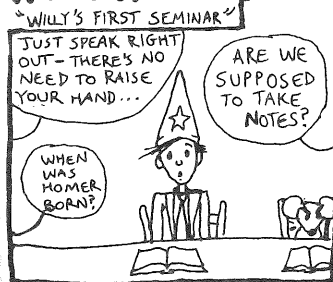 "WILLY'S FIRST SEMINAR"
JUST SPEAK RIGHT
OUT - THERE'S NO
NEED TO RAISE
YOUR HAND...
ARE WE
SUPPOSED
TO TAKE
NOTES?
WHEN
WAS
HOMER
BORN?